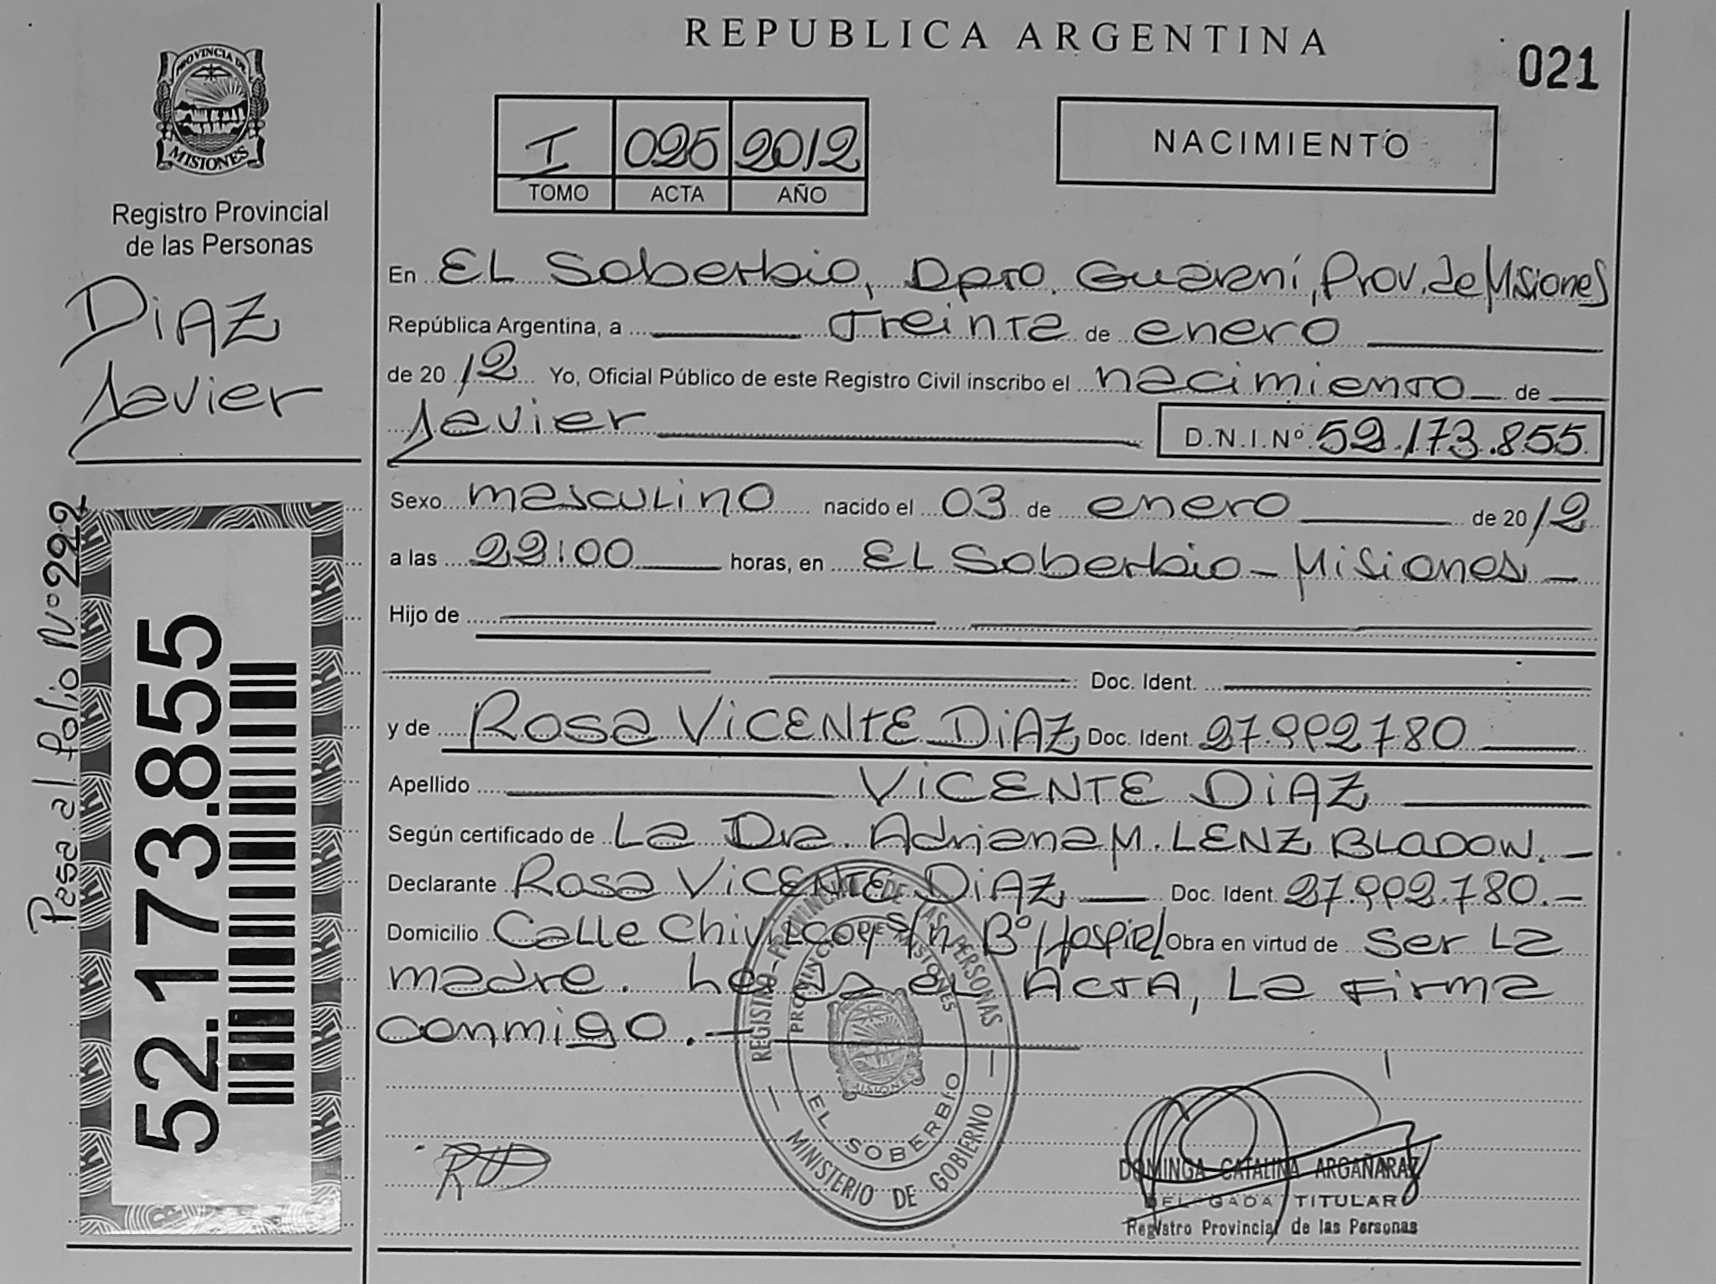 REPUBLICA ARGENTINA
021
PROVINCIA DE
MISIONES
Registro Provincial
de las Personas
I 025 2012
TOMO ACTA AÑO
NACIMIENTO
DiAZ
Javier
Pasa al folio Nº 222
52.173.855
En EL Soberbio, Dpto. Guaraní, Prov. de Misiones
República Argentina, a Treinta de enero
de 2012 Yo, Oficial Público de este Registro Civil inscribo el nacimiento de
Javier D.N.I.Nº 52.173.855
Sexo masculino nacido el 03 de enero de 2012
a las 22:00 horas, en EL Soberbio - Misiones -
Hijo de
Doc. Ident.
y de Rosa VICENTE DiAZ Doc. Ident. 27.992780
Apellido VICENTE DiAZ
Según certificado de La Dra. Adriana M. LENZ BLADON. -
Declarante Rosa VICENTE DiAZ Doc. Ident. 27.992.780.-
Domicilio Calle Chivilcoy s/n Bº Hospital Obra en virtud de ser La
madre. el ACTA, La firma
conmigo.-
REGISTRO PROVINCIAL DE LAS PERSONAS
PROVINCIA DE MISIONES
MISIONES
EL SOBERBIO
MINISTERIO DE GOBIERNO
DOMINGA CATALINA ARGAÑARAZ
DELEGADA TITULAR
Registro Provincial de las Personas